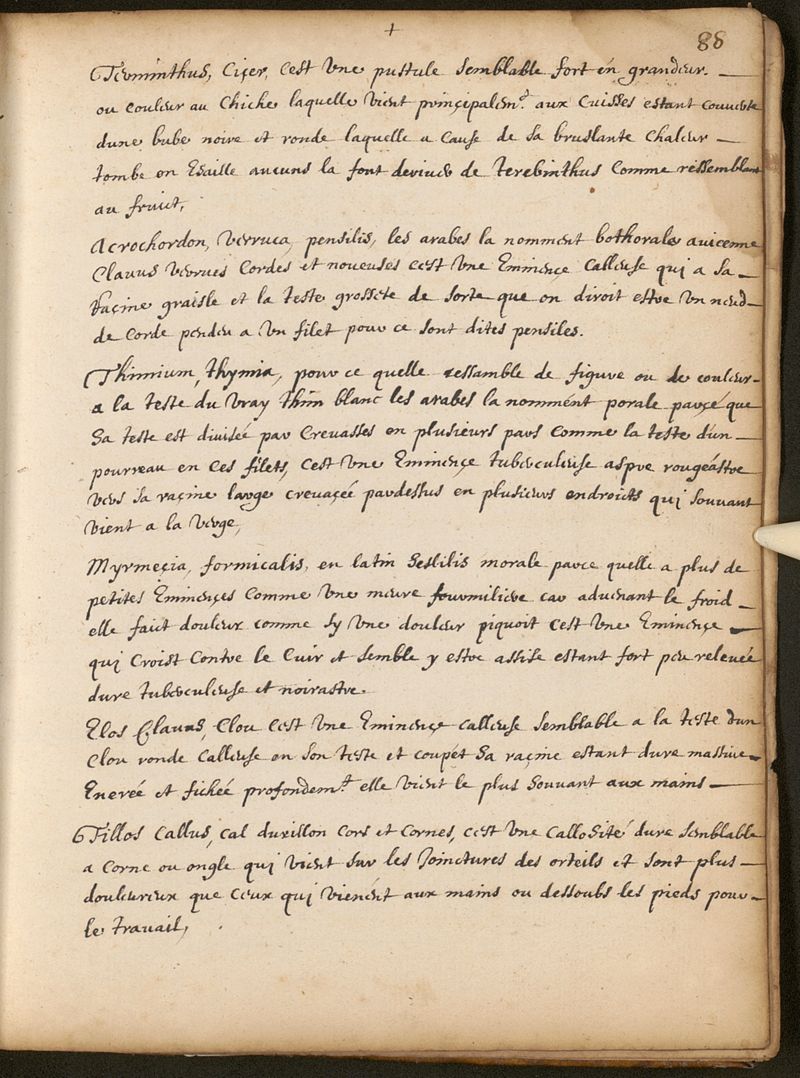 +
88
Terminthus, Ciçer, Cest Vne pustule semblable fort en grandeur
ou couleur au Chiche laquelle Vient prinçipalem.t aux Cuisses estant couuerte
dune bube noire et ronde laquelle a cause de sa bruslante chaleur
tombe en Escaille aucuns la font deriuer de terebinthus Comme ressemblant
au fruict,
Acrochordon, Verruca, pensilis, les arabes la nomment bothorales auicenne
Clauus Verrues Cordes et noueuses cest Vne Eminençe Calleuse qui a sa
raçine graisle et la teste grossete de sorte que on diroit estre Vn neud
de Corde pendeu a Vn filet pour ce sont dites pensiles.
Thimium, thymia, pour ce quelle ressamble de figure ou de couleur
a la teste du Vray thim blanc les arabes la nomment porale parçe que
sa teste est diuisée par Creuasses en plusieurs pars Comme la teste d'un
pourreau en Ces filets, cest Vne Eminençe tuberculeuse aspre rougeastre
vers sa raçine large creuaçeé pardessus en plusieurs endroicts qui souuant
Vient a la Verge,
Myrmeçia, formicalis, en latin Sessilis morale parce quelle a plus de
petites Eminençes Comme Vne meure fourmiliere car aduenant le froid
elle faict douleur comme sy Vne douleur piquoit cest Vne Eminençe
qui Croist Contre le Cuir et semble y estre assise estant fort peu releueé
dure tuberculeuse et noirastre.
Elos Clauus, Clou cest Vne Eminençe calleuse semblable a la teste dun
Clou ronde Calleuse en son teste et coupét sa raçine estant dure massiue
Enereé et ficheé profondem.t elle Vient le plus souuant aux mains
Tillos Callus, cal durillon Cors et Cornes, cest Vne callosité dure semblable
a Corne ou ongle qui Vient sur les Joinctures des orteils et sont plus
douleureux que Ceux qui Vienent aux mains ou dessoubs les pieds pour
le travail,